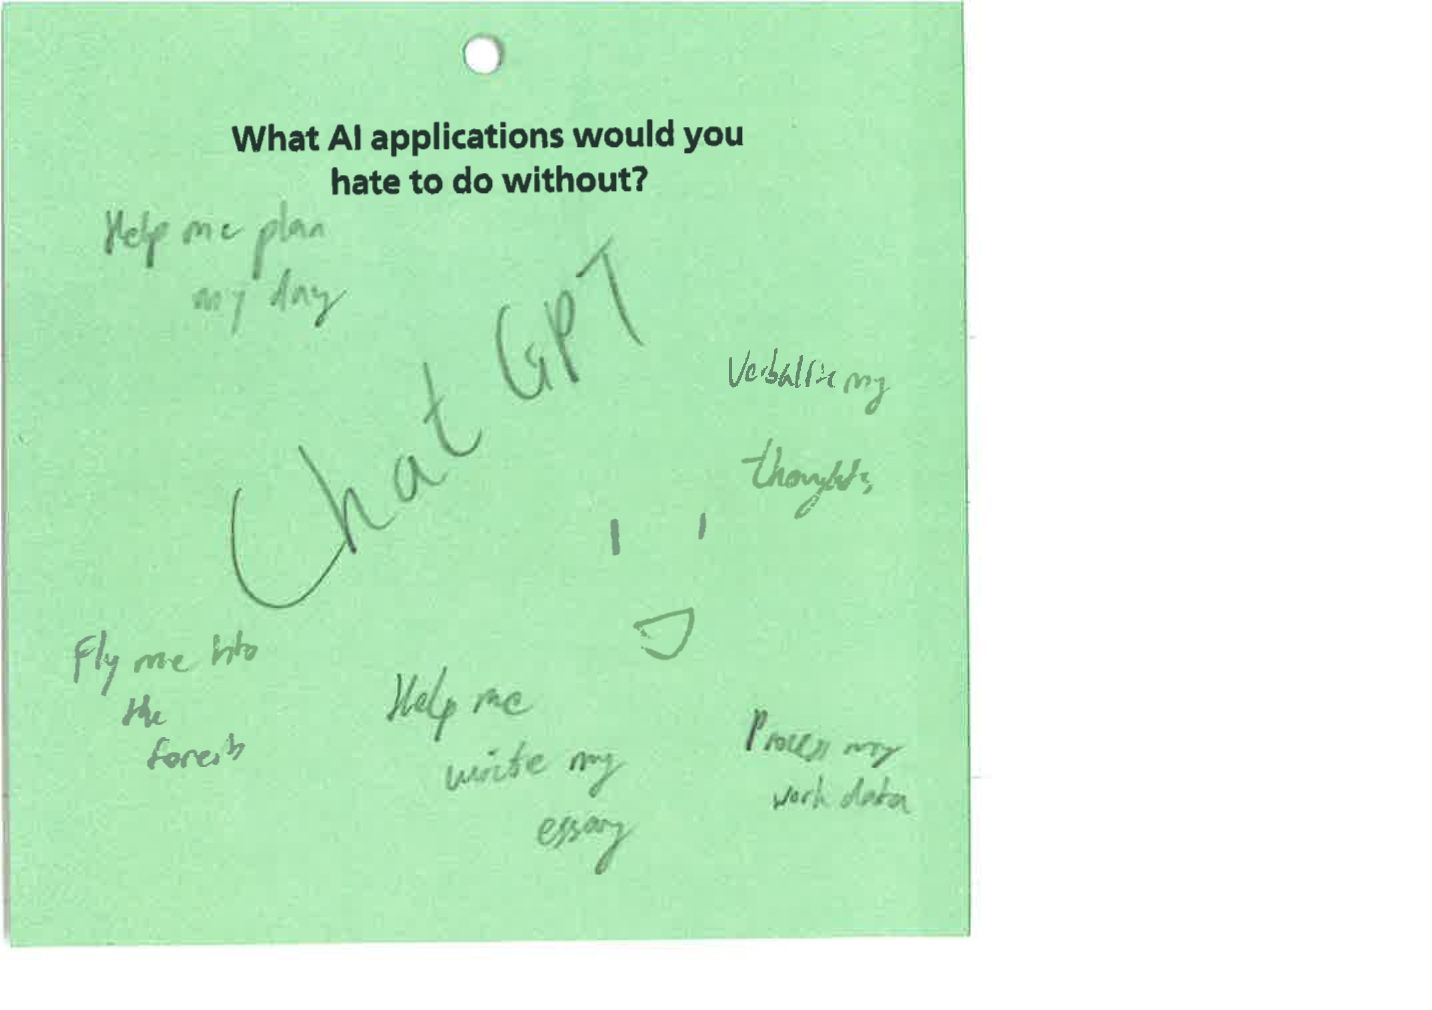 What AI applications would you
hate to do without?
Help me plan
my day
Chat GPT
Verbalise my
thoughts
Fly me into
the
forest
Help me
write my
essay
Process my
work data